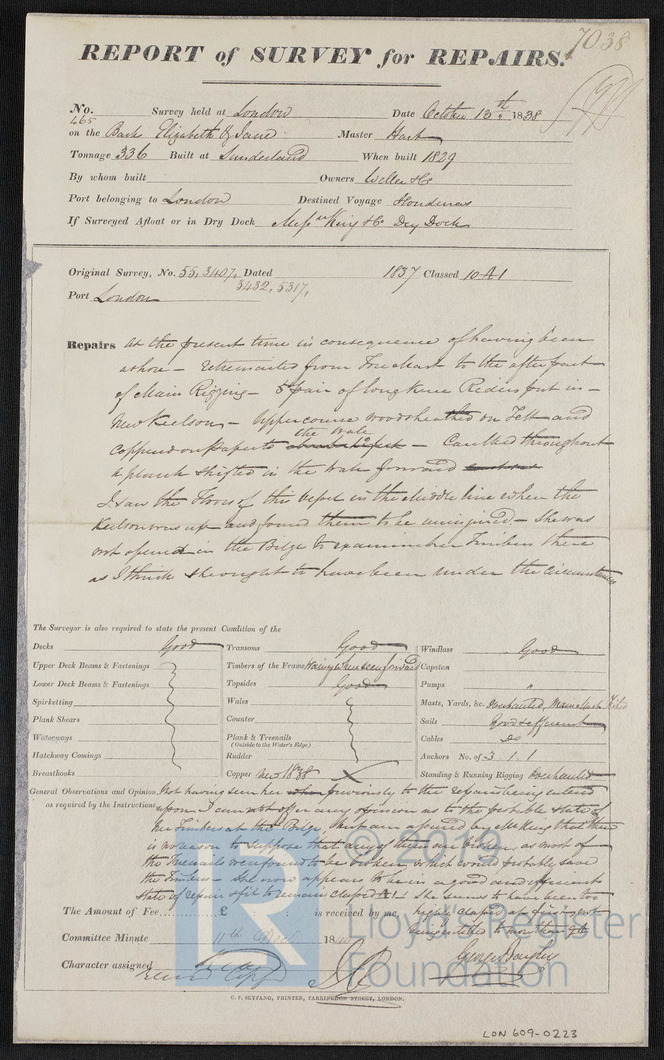 7038
REPORT of SURVEY for REPAIRS.
No. 465 Survey held at London Date October 13th 1838
on the Bark Elizabeth & Jane Master Hart
Tonnage 336 Built at Sunderland When built 1829
By whom built Owners Weller & Co
Port belonging to London Destined Voyage Honduras
If Surveyed Afloat or in Dry Dock Messrs King & Co Dry Dock
Original Survey, No. 55, 3407, Dated 1837 Classed 10 A 1
3432, 5317,
Port London
Repairs at the present time in consequence of having been
ashore – from Foremast to the after part
of Main Rigging – 5 pair of long Knee Riders put in –
New Keelson – Upper course woodsheathed on Felt and
coppered on paper to the Wale – Caulked throughout
a plank shifted in the Wale forward
I saw the Floors of this Vessel in the Middle line when the
Keelson was up and found them to be uninjured – She was
not opened in the Bilge to examine her Timbers there
as I think she ought to have been under the circumstances
The Surveyor is also required to state the present Condition of the
Decks Good Transoms Good Windlass Good
Upper Deck Beams & Fastenings Timbers of the Frame forward Capston
Lower Deck Beams & Fastenings Topsides Good Pumps "
Spirketting Wales Masts, Yards, &c. Overhauled, Main Mast
Plank Shears Counter Sails Good & efficient
Waterways Plank & Treenails Cables do
(Outside to the Water's Edge)
Hatchway Comings Rudder Anchors No. of 3. 1. 1
Breasthooks Copper New 1838 Standing & Running Rigging Overhauled
General Observations and Opinion, Not having seen her previously to the repairs being entered
as required by the Instructions upon I cannot offer any opinion as to the probable state of
her Timbers at the Bilge, but am by Mr King that there
is no reason to suppose that any of them are broken, as most of
the Treenails were found to be broken which would probably save
the Timbers She now appears to be in a good and efficient
state of repair & fit to remain classed A1. She seems to have been too
highly classed as first not
being entitled to more than
The Amount of Fee £ : : is received by me,
Committee Minute 11th Decr 18
Character assigned
George Bayley
C. F. SEYFANG, PRINTER, FARRINGDON STREET, LONDON.
© 2019
LR
Lloyd's Register
Foundation
LON 609-0223